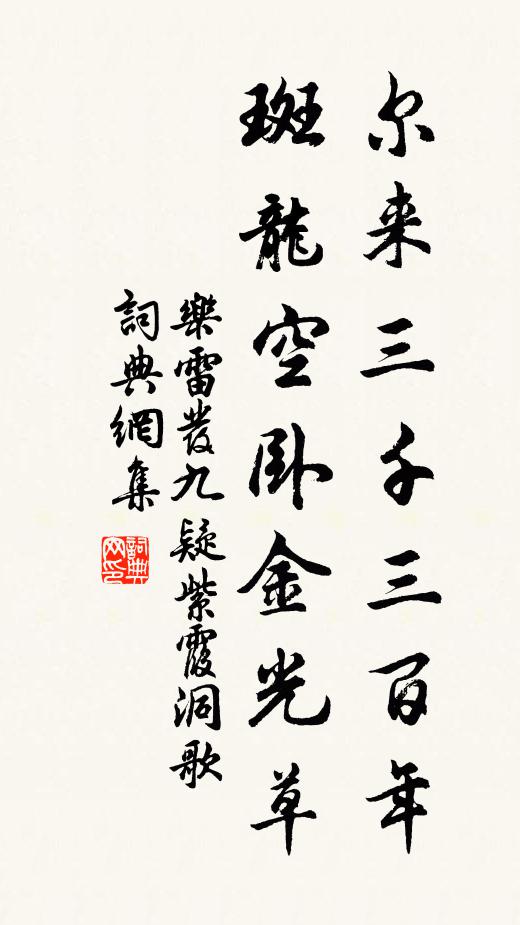 尔来三千三百年
斑龍空卧金光草
樂雷發九疑紫霞洞歌
詞典網集
詞典网印